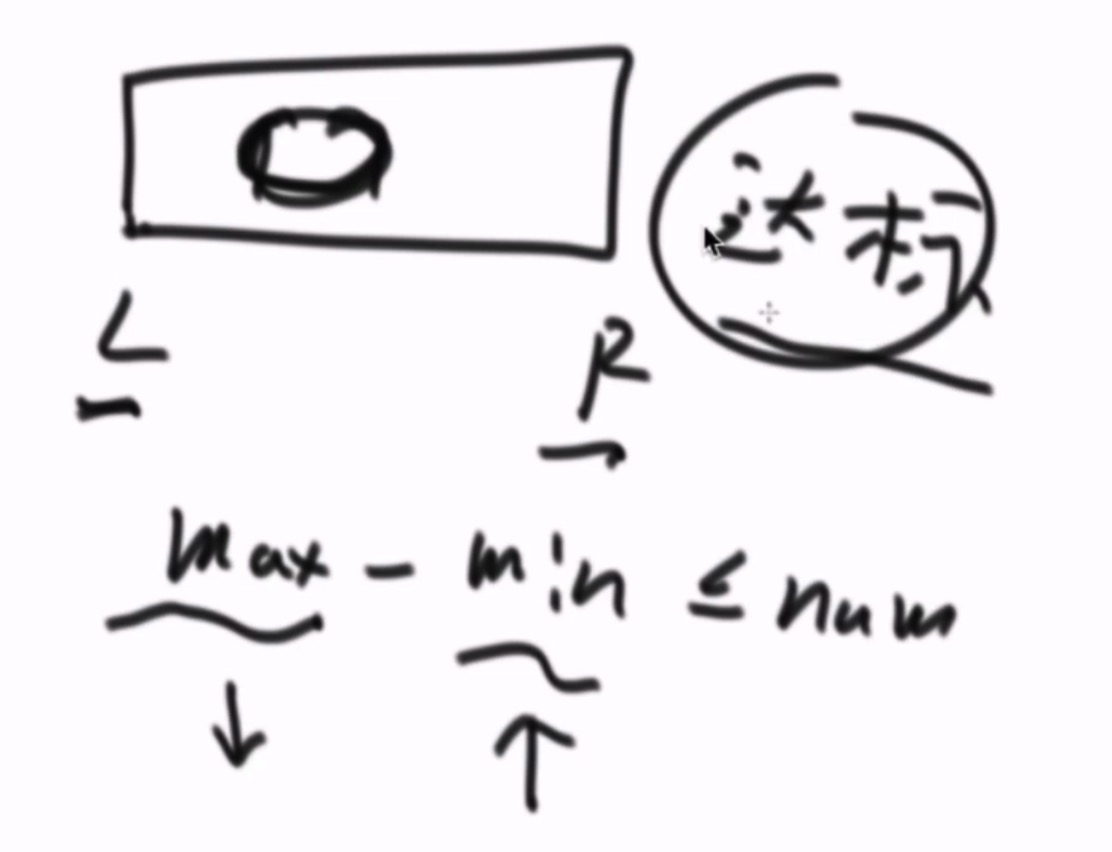 达标
L R
max - min ≤ num